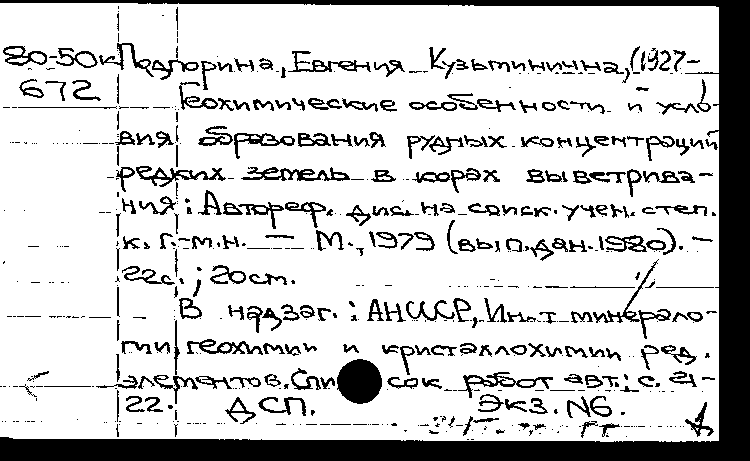 80-50к Подпорина, Евгения Кузьминична, (1927-
672 )
Геохимические особенности и усло-
вия образования рудных концентраций
редких земель в корах выветрива-
ния : Автореф. дис. на соиск. учен. степ.
к. г.-м.н. — М., 1979 (вып.дан. 1980). —
22с. ; 20см.
В надзаг. : АН СССР, Ин-т минерало-
гии, геохимии и кристаллохимии ред.
элементов. Список работ авт.: с. 21-
22. ДСП. Экз. N6.